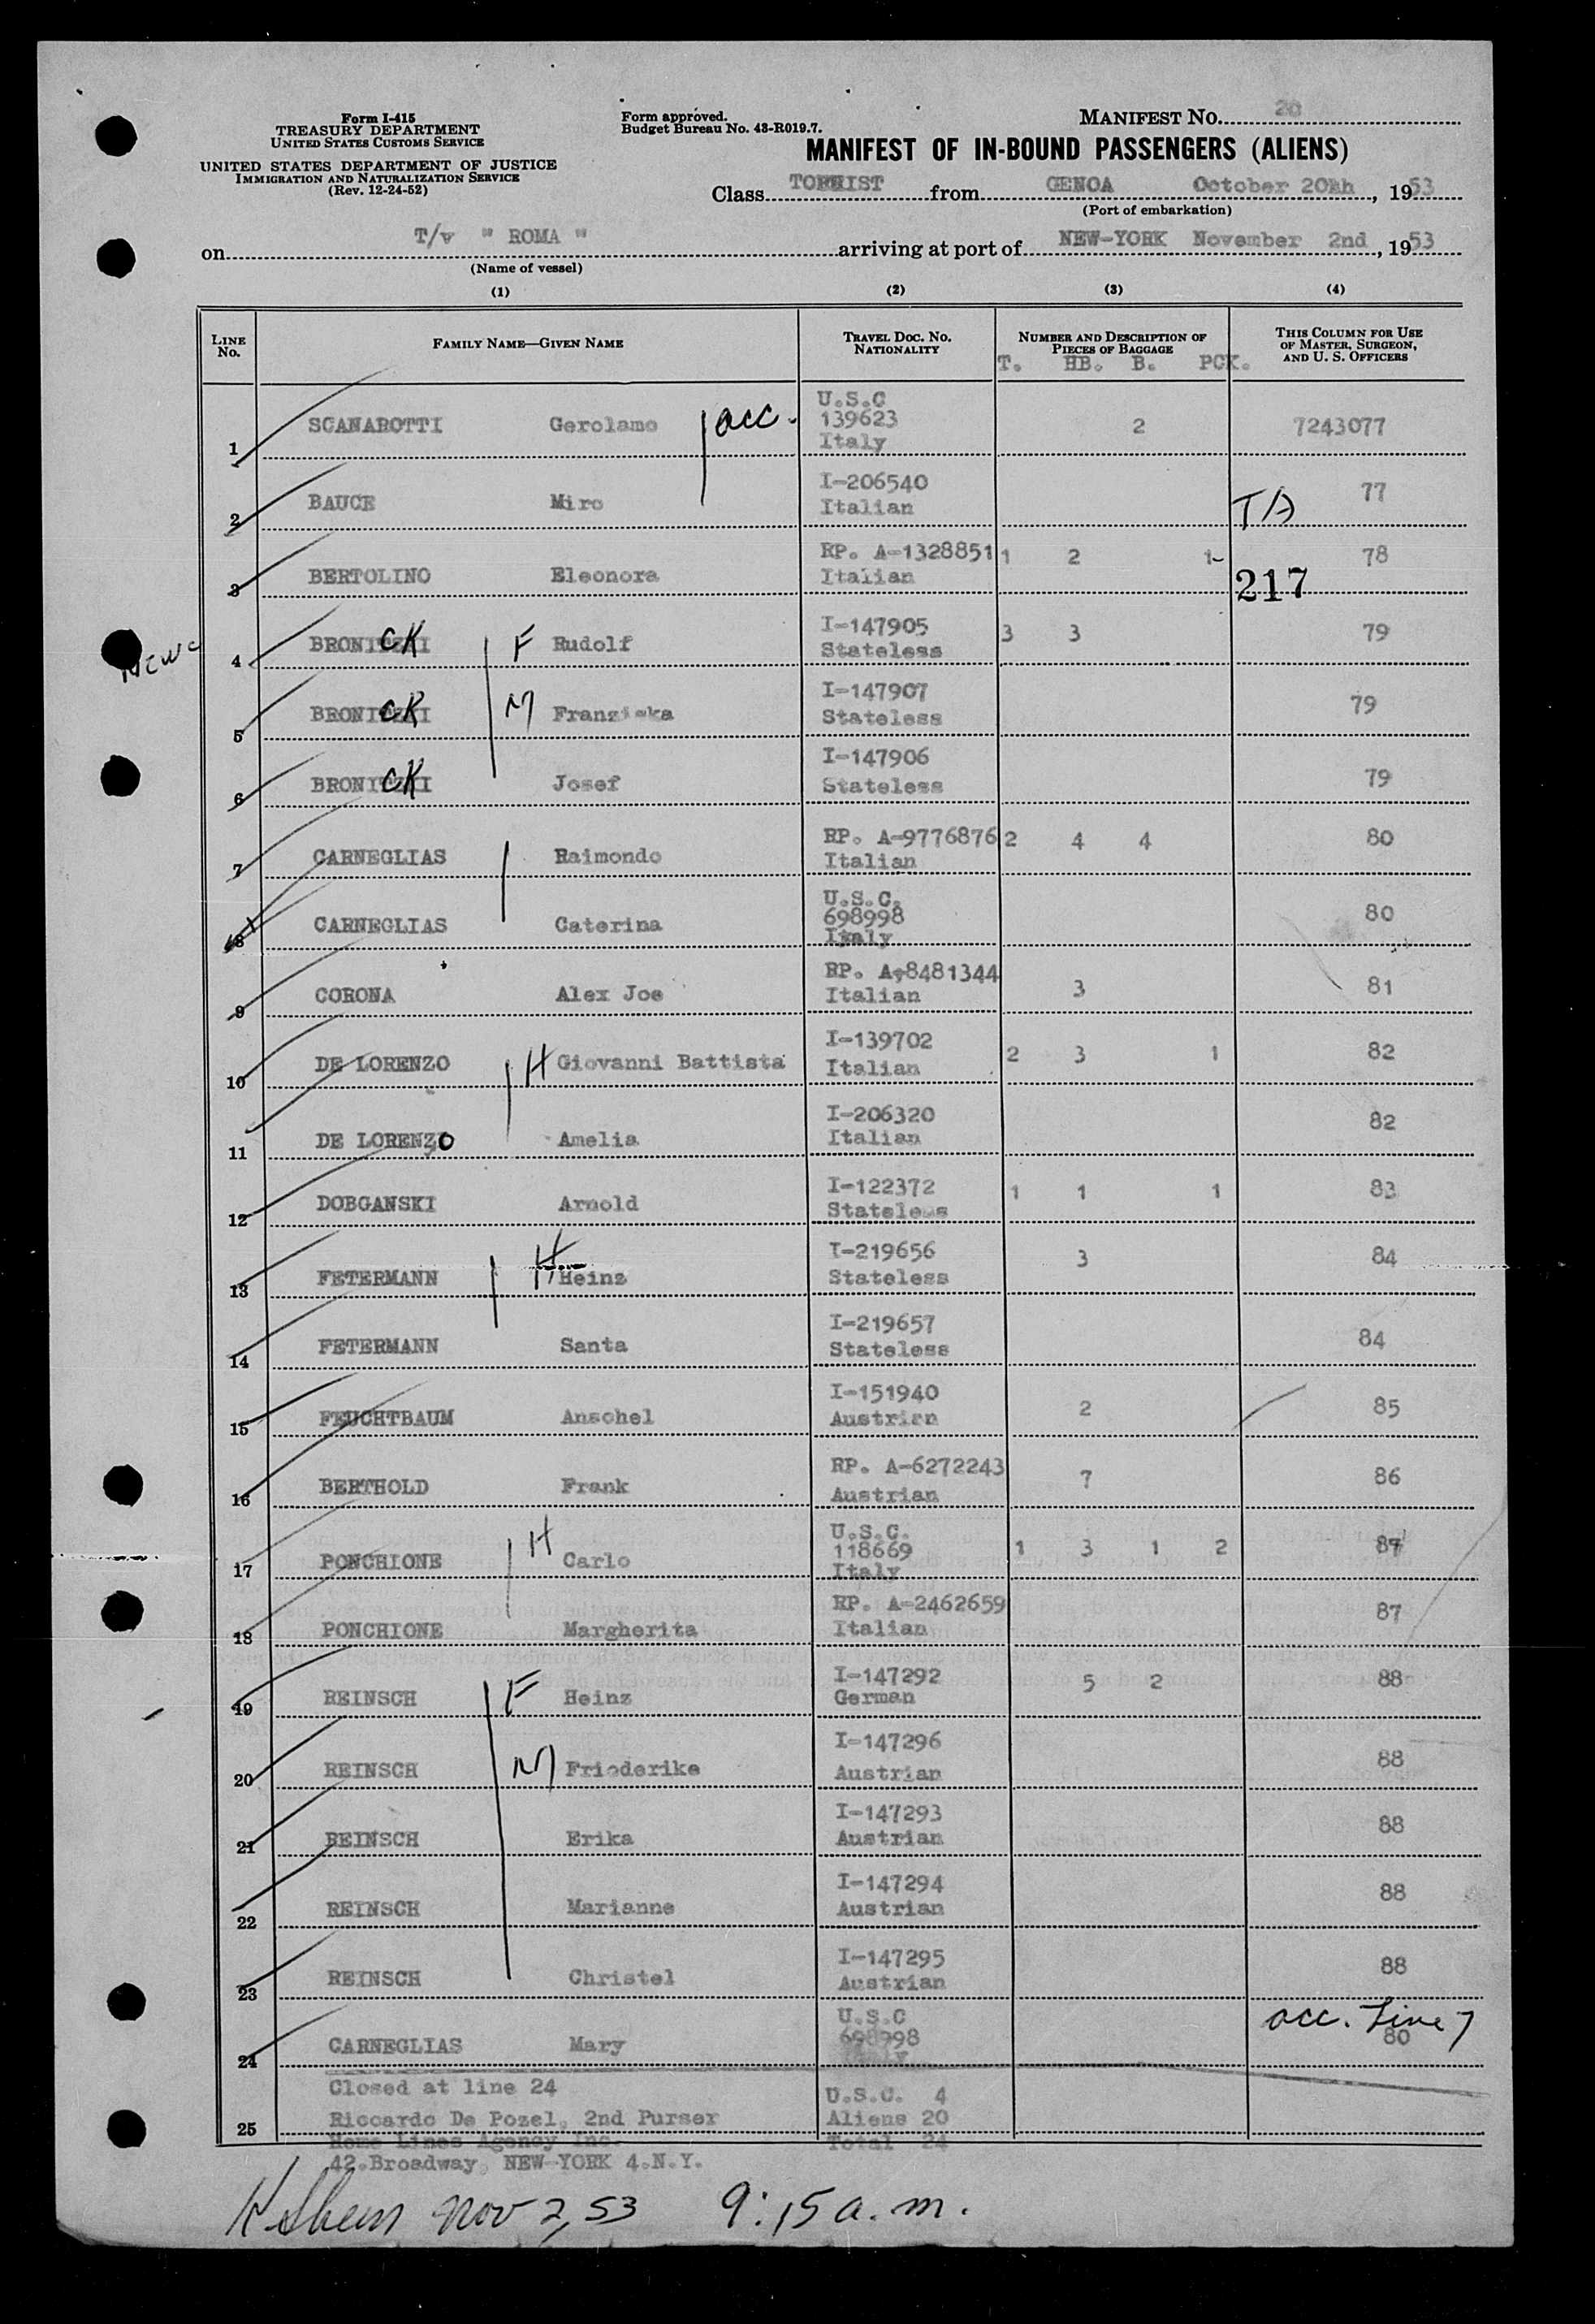 Form I-415
TREASURY DEPARTMENT
UNITED STATES CUSTOMS SERVICE
UNITED STATES DEPARTMENT OF JUSTICE
IMMIGRATION AND NATURALIZATION SERVICE
(Rev. 12-24-52)
Form approved.
Budget Bureau No. 43-R019.7.
MANIFEST NO. 20
MANIFEST OF IN-BOUND PASSENGERS (ALIENS)
Class TOURIST from GENOA October 20th, 1953
(Port of embarkation)
on T/v " ROMA " arriving at port of NEW-YORK November 2nd, 1953
(Name of vessel)
(1) (2) (3) (4)
LINE NO. FAMILY NAME—GIVEN NAME TRAVEL DOC. NO. NATIONALITY NUMBER AND DESCRIPTION OF PIECES OF BAGGAGE THIS COLUMN FOR USE OF MASTER, SURGEON, AND U. S. OFFICERS
T. HB. B. PCK.
1 SCANAROTTI Gerolamo acc. U.S.C 139623 Italy 2 7243077
2 BAUCE Miro I-206540 Italian TA 77
3 BERTOLINO Eleonora RP. A-1328851 Italian 1 2 1 217 78
4 BRONITZKI CK F Rudolf I-147905 Stateless 3 3 79
5 BRONITZKI CK M Franziska I-147907 Stateless 79
6 BRONITZKI CK Josef I-147906 Stateless 79
7 CARNEGLIAS Raimondo RP. A-9776876 Italian 2 4 4 80
8 CARNEGLIAS Caterina U.S.C. 698998 Italy 80
9 CORONA Alex Joe RP. A-8481344 Italian 3 81
10 DE LORENZO H Giovanni Battista I-139702 Italian 2 3 1 82
11 DE LORENZO Amelia I-206320 Italian 82
12 DOBGANSKI Arnold I-122372 Stateless 1 1 1 83
13 FETERMANN H Heinz I-219656 Stateless 3 84
14 FETERMANN Santa I-219657 Stateless 84
15 FEUCHTBAUM Anschel I-151940 Austrian 2 85
16 BERTHOLD Frank RP. A-6272243 Austrian 7 86
17 PONCHIONE H Carlo U.S.C. 118669 Italy 1 3 1 2 87
18 PONCHIONE Margherita RP. A-2462659 Italian 87
19 REINSCH F Heinz I-147292 German 5 2 88
20 REINSCH M Friederike I-147296 Austrian 88
21 REINSCH Erika I-147293 Austrian 88
22 REINSCH Marianne I-147294 Austrian 88
23 REINSCH Christel I-147295 Austrian 88
24 CARNEGLIAS Mary U.S.C 698998 Italy acc. Line 7 80
Closed at line 24 U.S.C. 4
25 Riccardo De Pozel, 2nd Purser Aliens 20
Home Lines Agency Inc. Total 24
42.Broadway, NEW-YORK 4.N.Y.
Nov 2, 53 9:15 a.m.